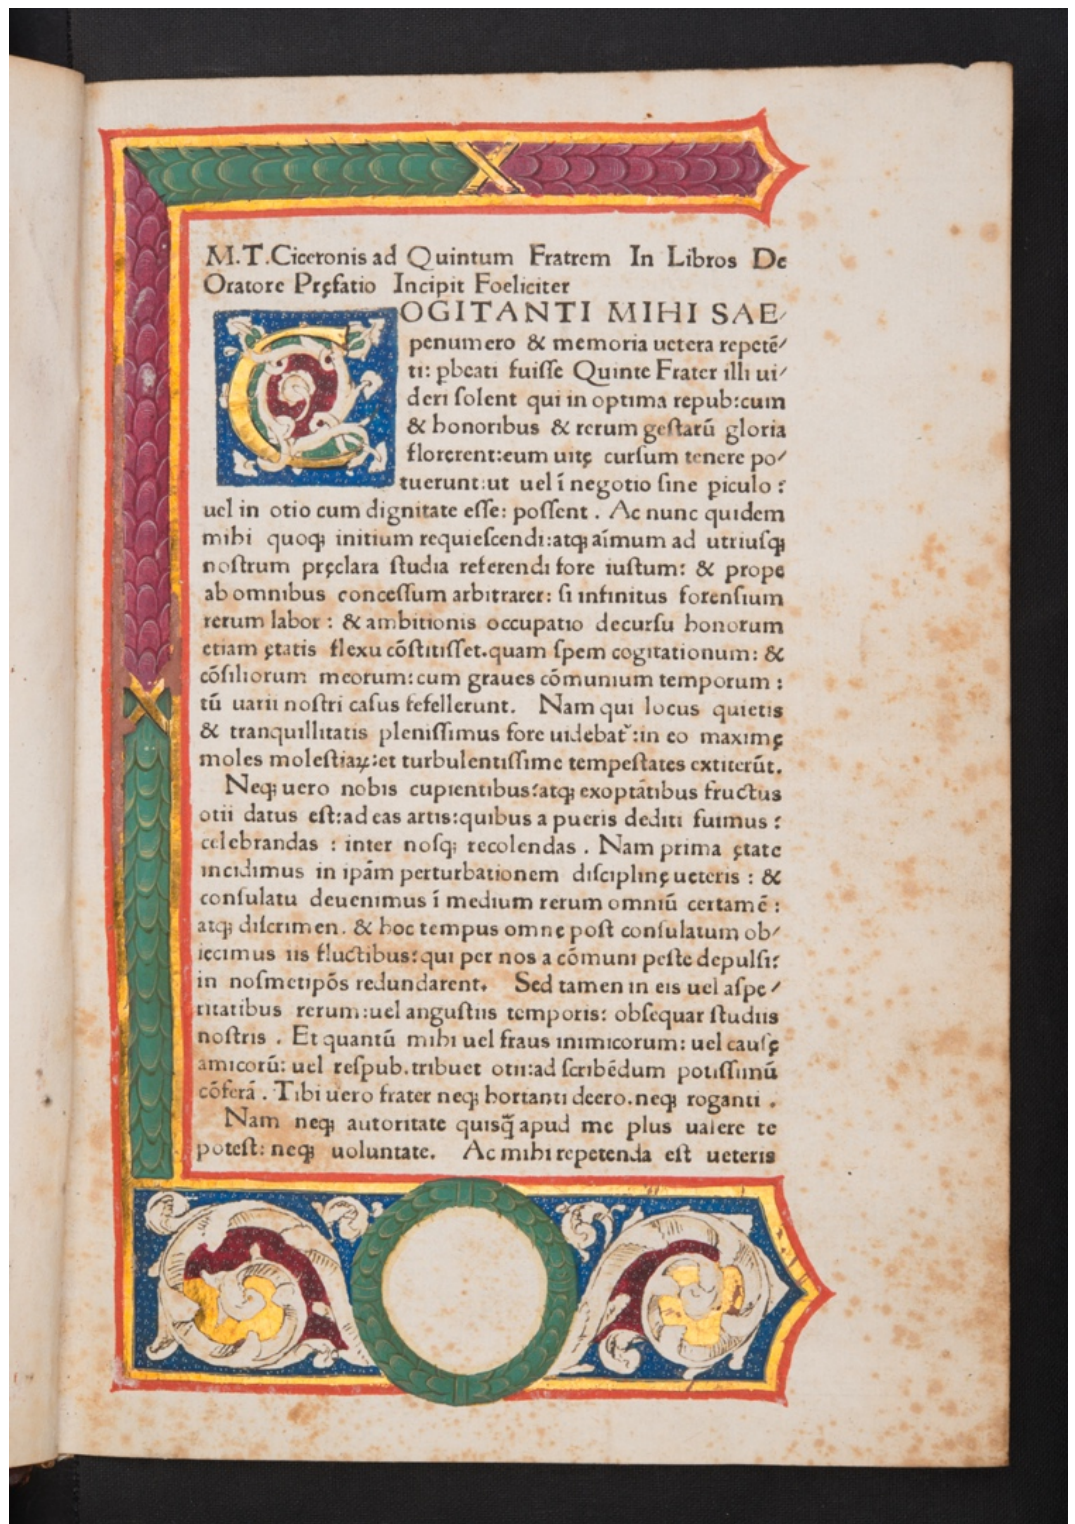 M.T.Ciceronis ad Quintum Fratrem In Libros De
Oratore Pręfatio Incipit Foeliciter
COGITANTI MIHI SAE⸗
penumero & memoria uetera repetē⸗
ti: ꝑbeati fuiſſe Quinte Frater illi ui⸗
deri ſolent qui in optima repub:cum
& honoribus & rerum geſtarū gloria
florerent:eum uitę curſum tenere po⸗
tuerunt:ut uel ī negotio ſine ꝑiculo :
uel in otio cum dignitate eſſe: poſſent . Ac nunc quidem
mihi quoqꝫ initium requieſcendi:atqꝫ aīmum ad utriuſqꝫ
noſtrum pręclara ſtudia referendi fore iuſtum: & prope
ab omnibus conceſſum arbitrarer: ſi infinitus forenſium
rerum labor : & ambitionis occupatio decurſu honorum
etiam ętatis flexu cōſtitiſſet.quam ſpem cogitationum: &
cōſiliorum meorum:cum graues cōmunium temporum :
tū uarii noſtri caſus fefellerunt. Nam qui locus quietis
& tranquillitatis pleniſſimus fore uidebat᷑:in eo maximę
moles moleſtiaꝝ:et turbulentiſſime tempeſtates extiterūt.
Neqꝫ uero nobis cupientibus:atqꝫ exoptātibus fructus
otii datus eſt:ad eas artis:quibus a pueris dediti fuimus :
celebrandas : inter noſqꝫ recolendas . Nam prima ętate
incidimus in ipām perturbationem diſciplinę ueteris : &
conſulatu deuenimus ī medium rerum omniū certamē :
atqꝫ diſcrimen. & hoc tempus omne poſt conſulatum ob⸗
iecimus iis fluctibus:qui per nos a cōmuni peſte depulſi:
in noſmetipōs redundarent. Sed tamen in eis uel aſpe⸗
ritatibus rerum:uel anguſtiis temporis: obſequar ſtudiis
noſtris . Et quantū mihi uel fraus inimicorum: uel cauſę
amicorū: uel reſpub.tribuet otii:ad ſcribēdum potiſſimū
cōferā . Tibi uero frater neqꝫ hortanti deero.neqꝫ roganti .
Nam neqꝫ autoritate quisq̄ apud me plus ualere te
poteſt: neqꝫ uoluntate. Ac mihi repetenda eſt ueteris